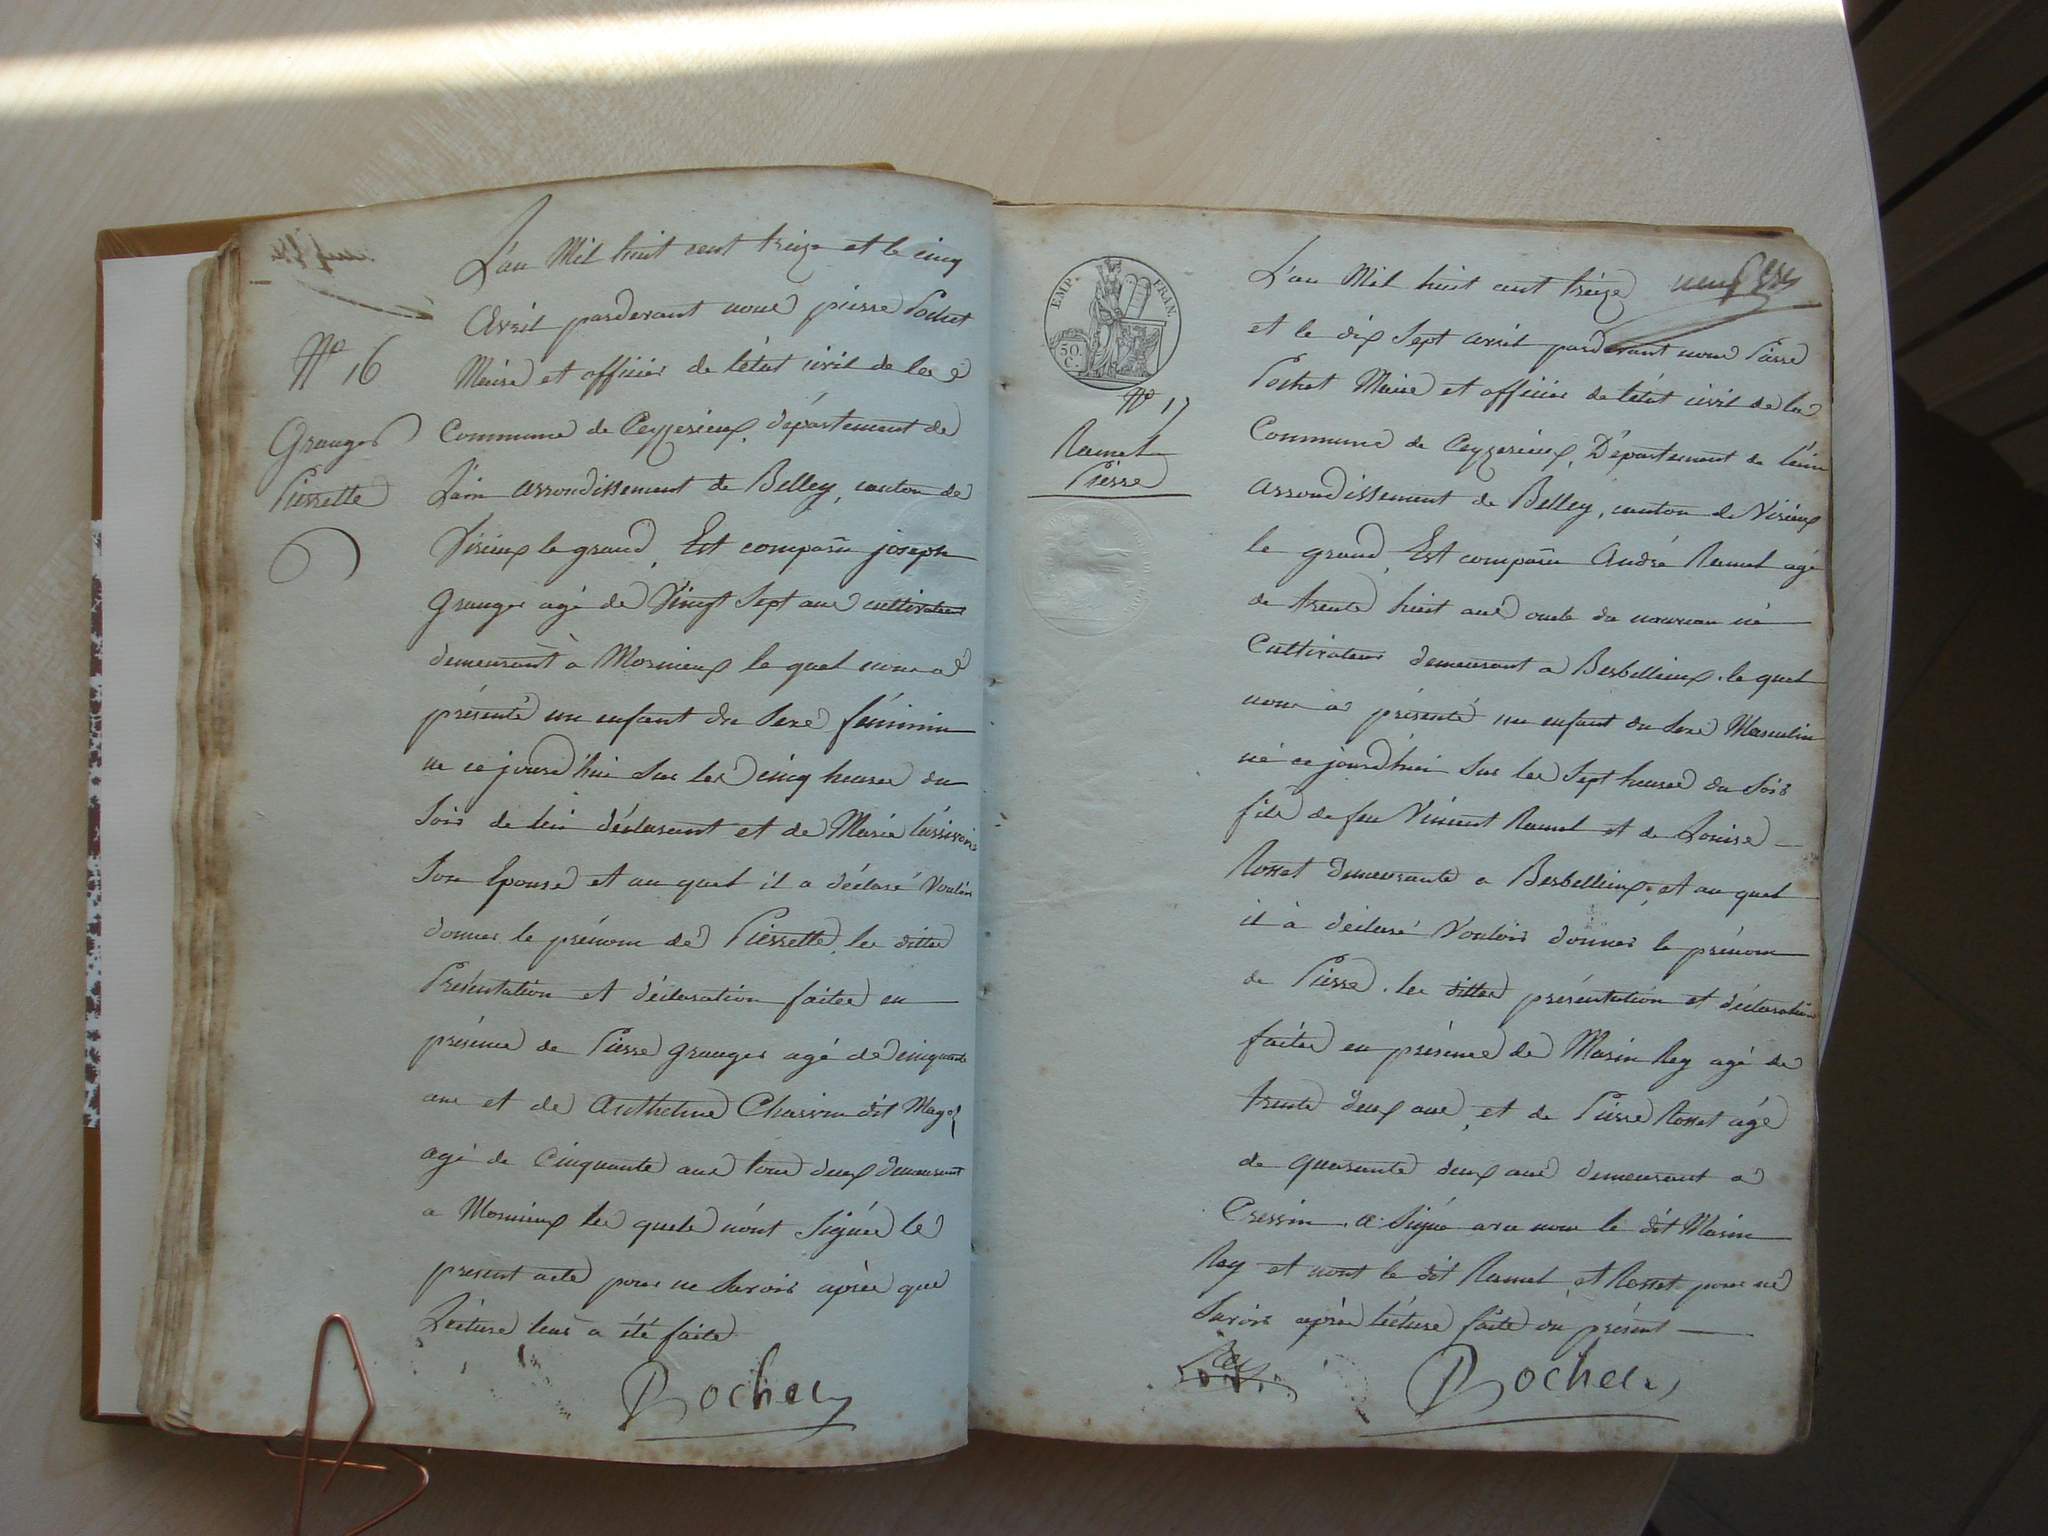 L'an Mil huit cent treize et le cinq
Avril pardevant nous pierre Pochet
Maire et officier de l'état civil de la
Commune de Ceyzerieux, département de
L'ain arrondissement de Belley, canton de
Virieux le grand, Est comparu joseph
Granger agé de Vingt Sept ans cultivateur
demeurant à Mornieux le quel nous a
présenté un enfant du Sexe féminin
né ce jourd'hui Sur les cinq heures du
Soir de lui déclarant et de Marie
Son Epouse et au quel il a déclaré Vouloir
donner le prénom de Pierrette, les dittes
Présentation et déclaration faites en
présence de Pierre granger agé de cinquante
ans et de Anthelme dit
agé de Cinquante ans tous deux demeurant
a Mornieux les quels n'ont Signés le
present acte pour ne Savoir après que
Lecture leur a été faite
Pochet
N° 16
Granger
Pierrette
EMP. FRAN.
50.
C.
N° 17
Ramel
Pierre
L'an Mil huit cent treize neuf
et le dix Sept avril pardevant nous Pierre
Pochet Maire et officier de l'état civil de la
Commune de Ceyzerieux, Département de l'ain
arrondissement de Belley, canton de Virieux
le grand, Est comparu André Ramel agé
de trente huit ans oncle du nouveau né
Cultivateur demeurant a Berbellieux, le quel
nous a présenté un enfant du Sexe Masculin
né ce jourd'hui Sur les Sept heures du Soir
fils de feu Vincent Ramel et de Louise
Rosset demeurante a Berbellieux, et au quel
il à déclaré Vouloir donner le prénom
de Pierre. les dittes présentation et déclaration
faites en présence de Marin Rey agé de
trente deux ans, et de Pierre Rosset agé
de quarante deux ans demeurant a
Cressin, a Signé avec nous le dit Marin
Rey et nont le dit Ramel et Rosset pour ne
Savoir après lécture faite du présent
Pochet